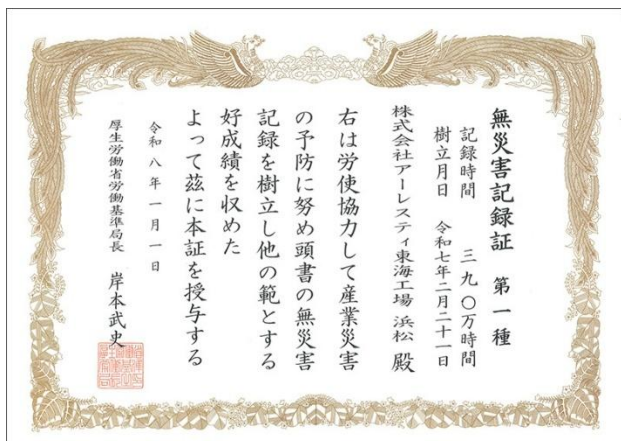 無災害記録証 第一種
記録時間 三九〇万時間
樹立月日 令和七年二月二十一日
株式会社アーレスティ東海工場 浜松 殿
右は労使協力して産業災害
の予防に努め頭書の無災害
記録を樹立し他の範とする
好成績を収めた
よって茲に本証を授与する
令和八年一月一日
厚生労働省労働基準局長 岸本武史